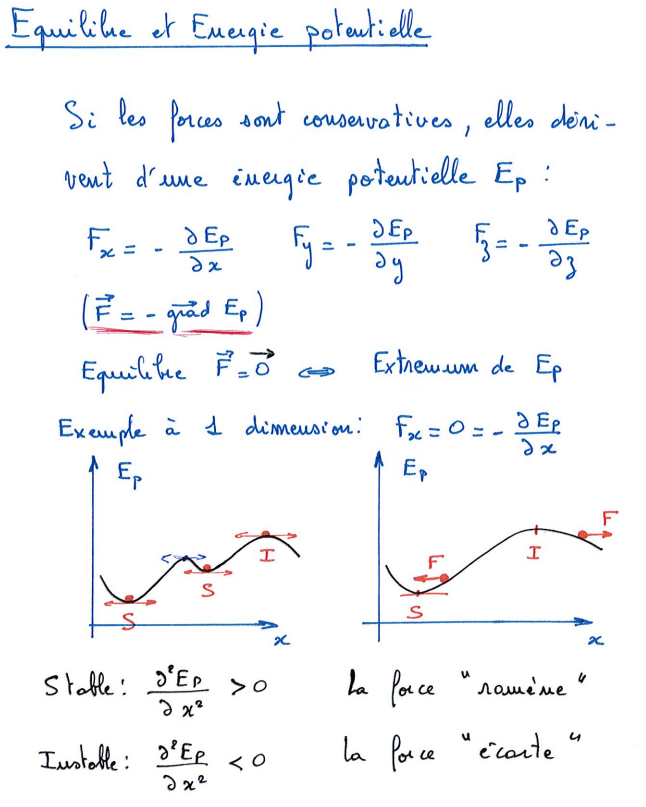 Equilibre et Energie potentielle
Si les forces sont conservatives, elles déri-
vent d'une énergie potentielle Ep :
Fx = - ∂Ep/∂x Fy = - ∂Ep/∂y Fz = - ∂Ep/∂z
(F⃗ = - grad⃗ Ep)
Equilibre F⃗ = 0⃗ ⇔ Extremum de Ep
Exemple à 1 dimension: Fx = 0 = - ∂Ep/∂x
Ep Ep
F
I I
F
S S S
x x
Stable: ∂²Ep/∂x² > 0 La force "ramène"
Instable: ∂²Ep/∂x² < 0 La force "écarte"